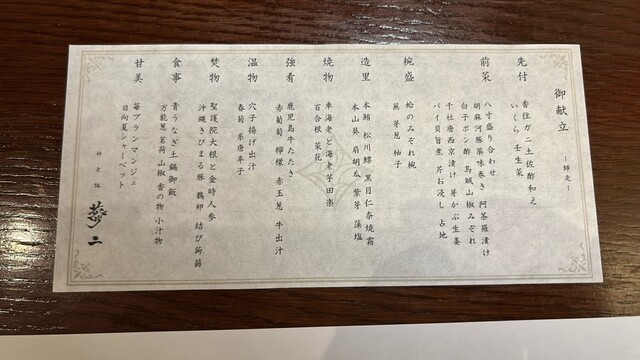 御献立
―師走―
先付
香住ガニ土佐酢和え
いくら 壬生菜
前菜
八寸盛り合わせ
胡麻河豚薬味巻き 阿茶羅漬け
白子ポン酢 鳥賊山椒みぞれ
千社唐西京漬け 芽かぶ生姜
バイ貝旨煮 芹お浸し 占地
椀盛
蛤のみぞれ椀
蕪 芽葱 柚子
造里
本鮪 松川鰈 黒目仁奈焼霜
本山葵 扇胡瓜 紫芽 藻塩
焼物
車海老と海老芋田楽
百合根 菜花
強肴
鹿児島牛たたき
赤葡萄 檸檬 赤玉葱 牛出汁
温物
穴子揚げ出汁
春菊 糸唐辛子
焚物
聖護院大根と金時人参
沖縄きびまる豚 鶉卵 結び蒟蒻
食事
青うなぎ土鍋御飯
万能葱 茗荷 山椒 香の物 小汁物
甘美
苺ブランマンジェ
日向夏シャーベット
夢二